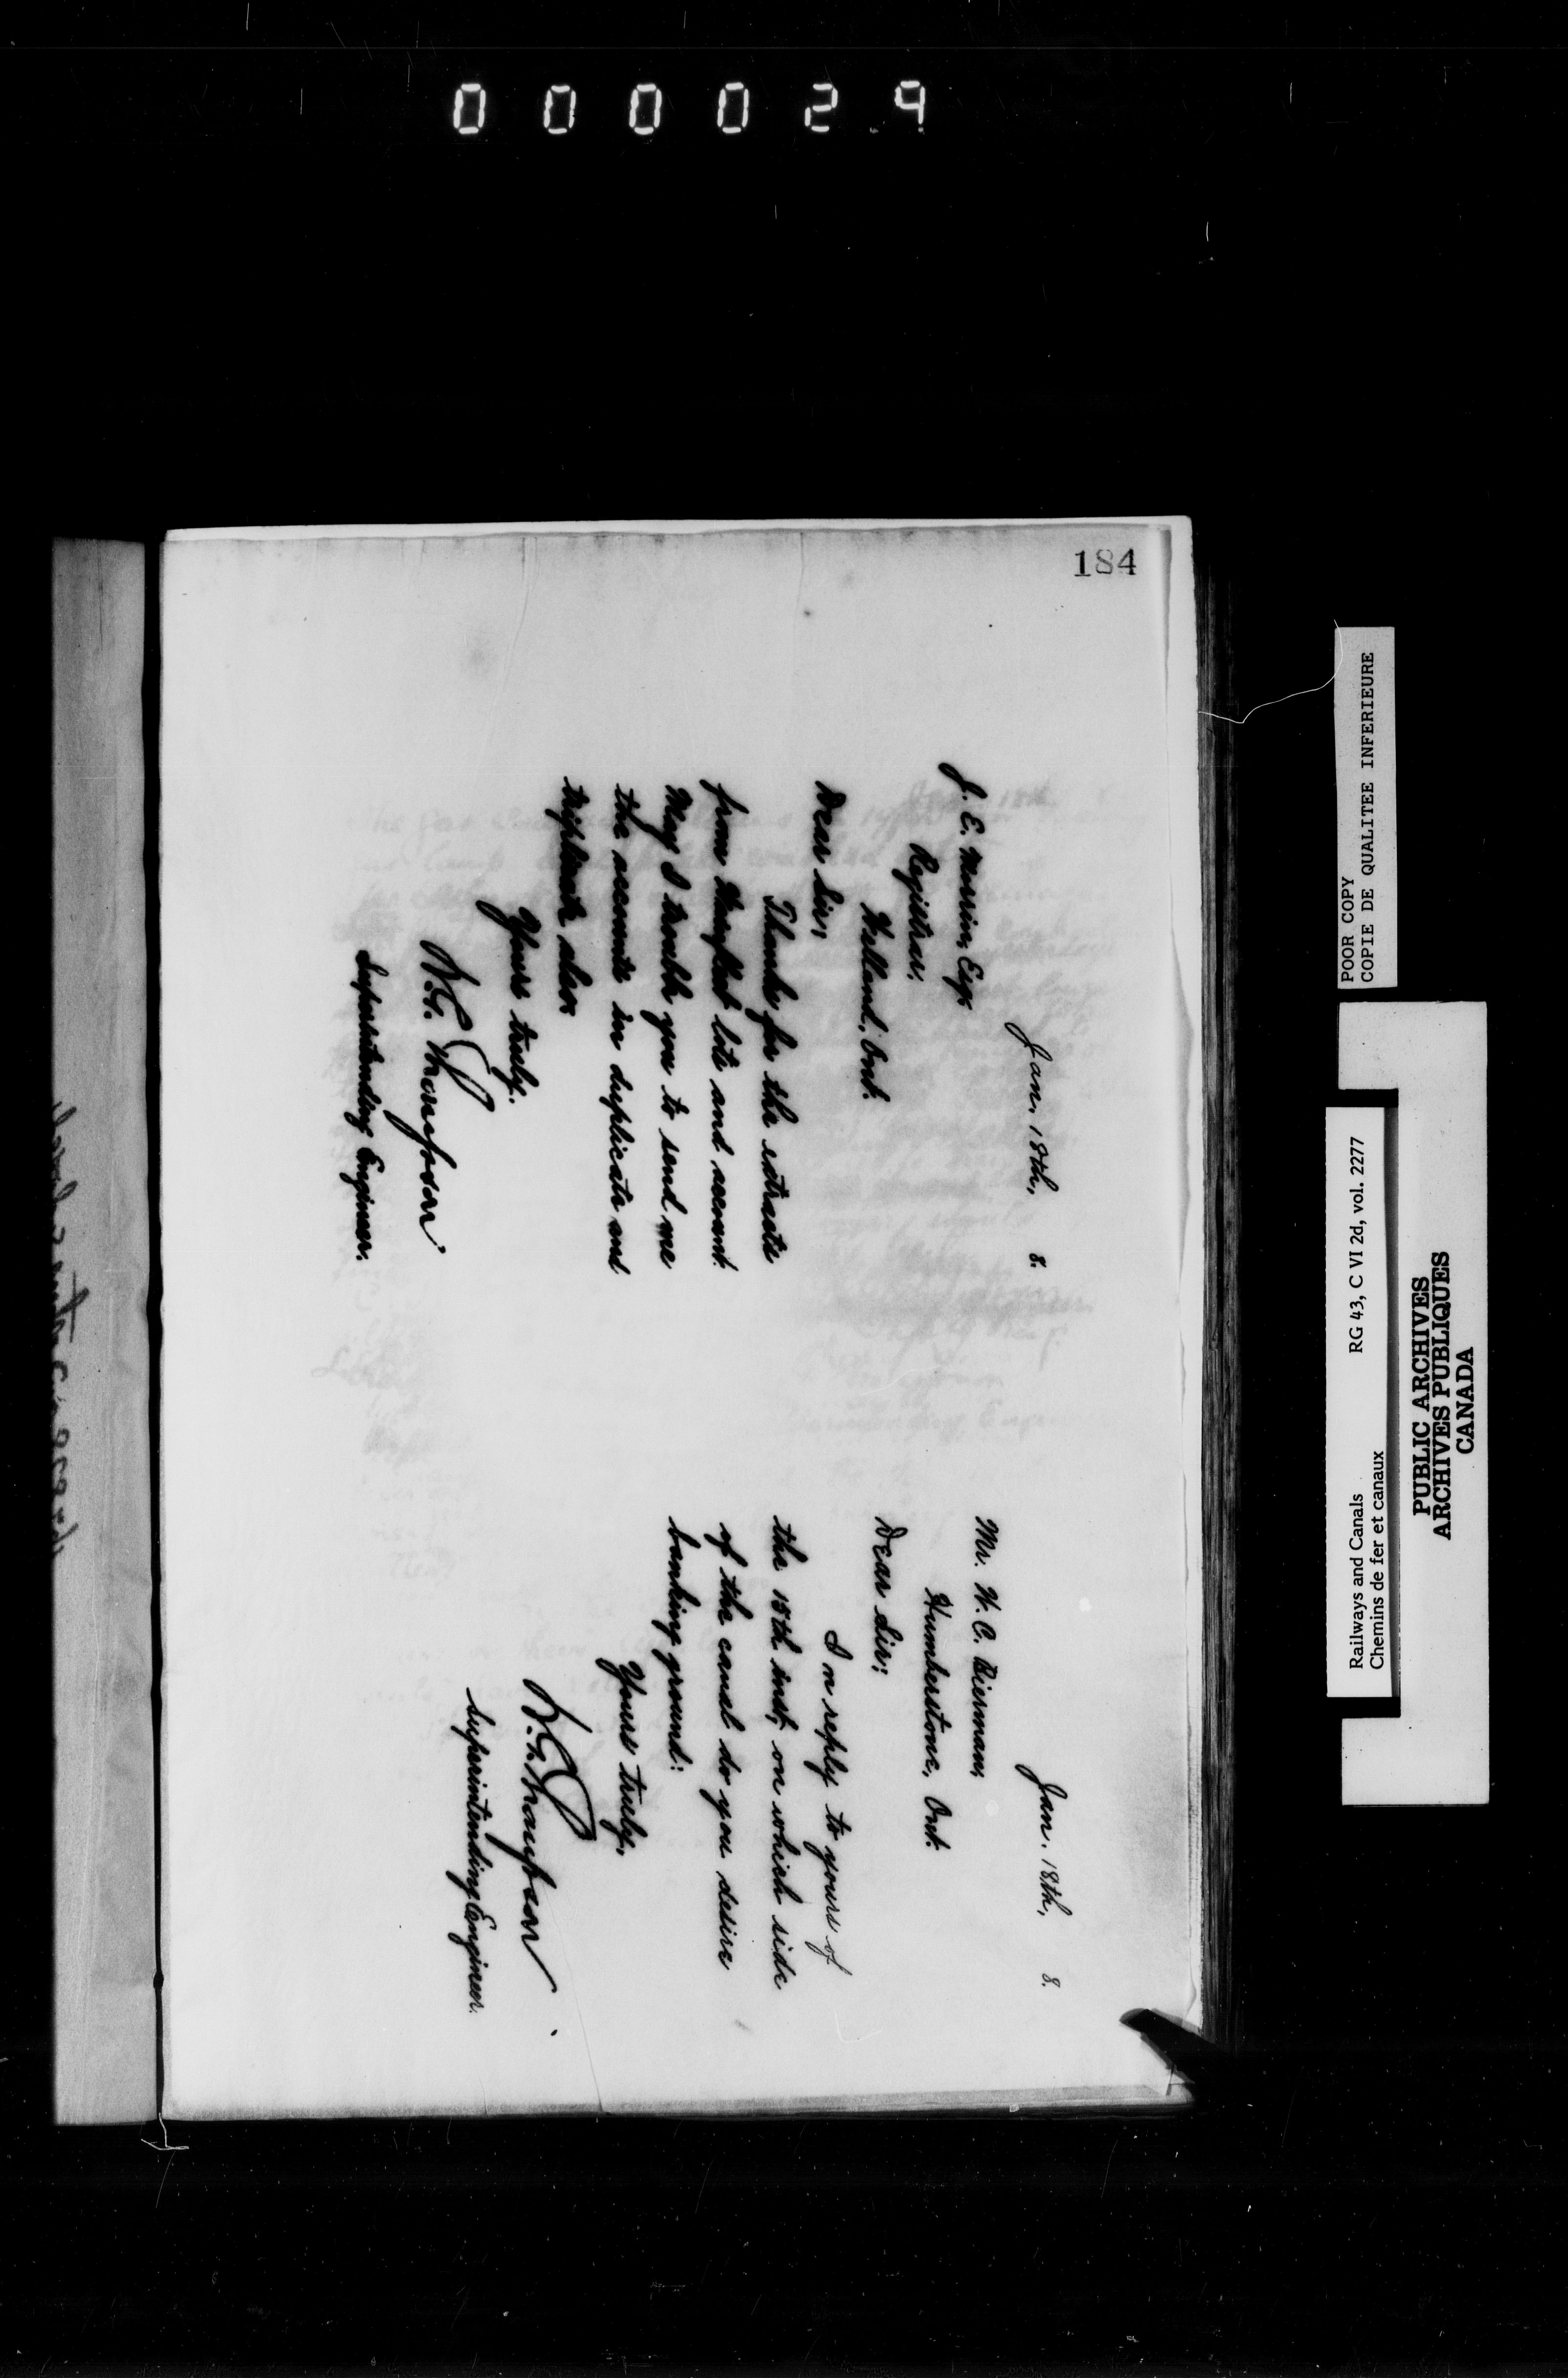 000029
184
Jan. 18th, 8.
J. E. Morin, Esq.
Registrar,
Welland, Ont.
Dear Sir,
Thanks for the extracts
from lots and account.
May I trouble you to send me
the accounts in duplicate and
triplicate also.
Yours truly.
W.G. Thompson
Superintending Engineer.
Jan. 18th, 8.
Mr. W. C. Bierman,
Humberstone, Ont.
Dear Sir:
In reply to yours of
the 15th inst, on which side
of the canal do you desire
banking ground:
Yours truly,
W.G. Thompson
Superintending Engineer.
POOR COPY
COPIE DE QUALITEE INFERIEURE
Railways and Canals RG 43, C VI 2d, vol. 2277
Chemins de fer et canaux
PUBLIC ARCHIVES
ARCHIVES PUBLIQUES
CANADA